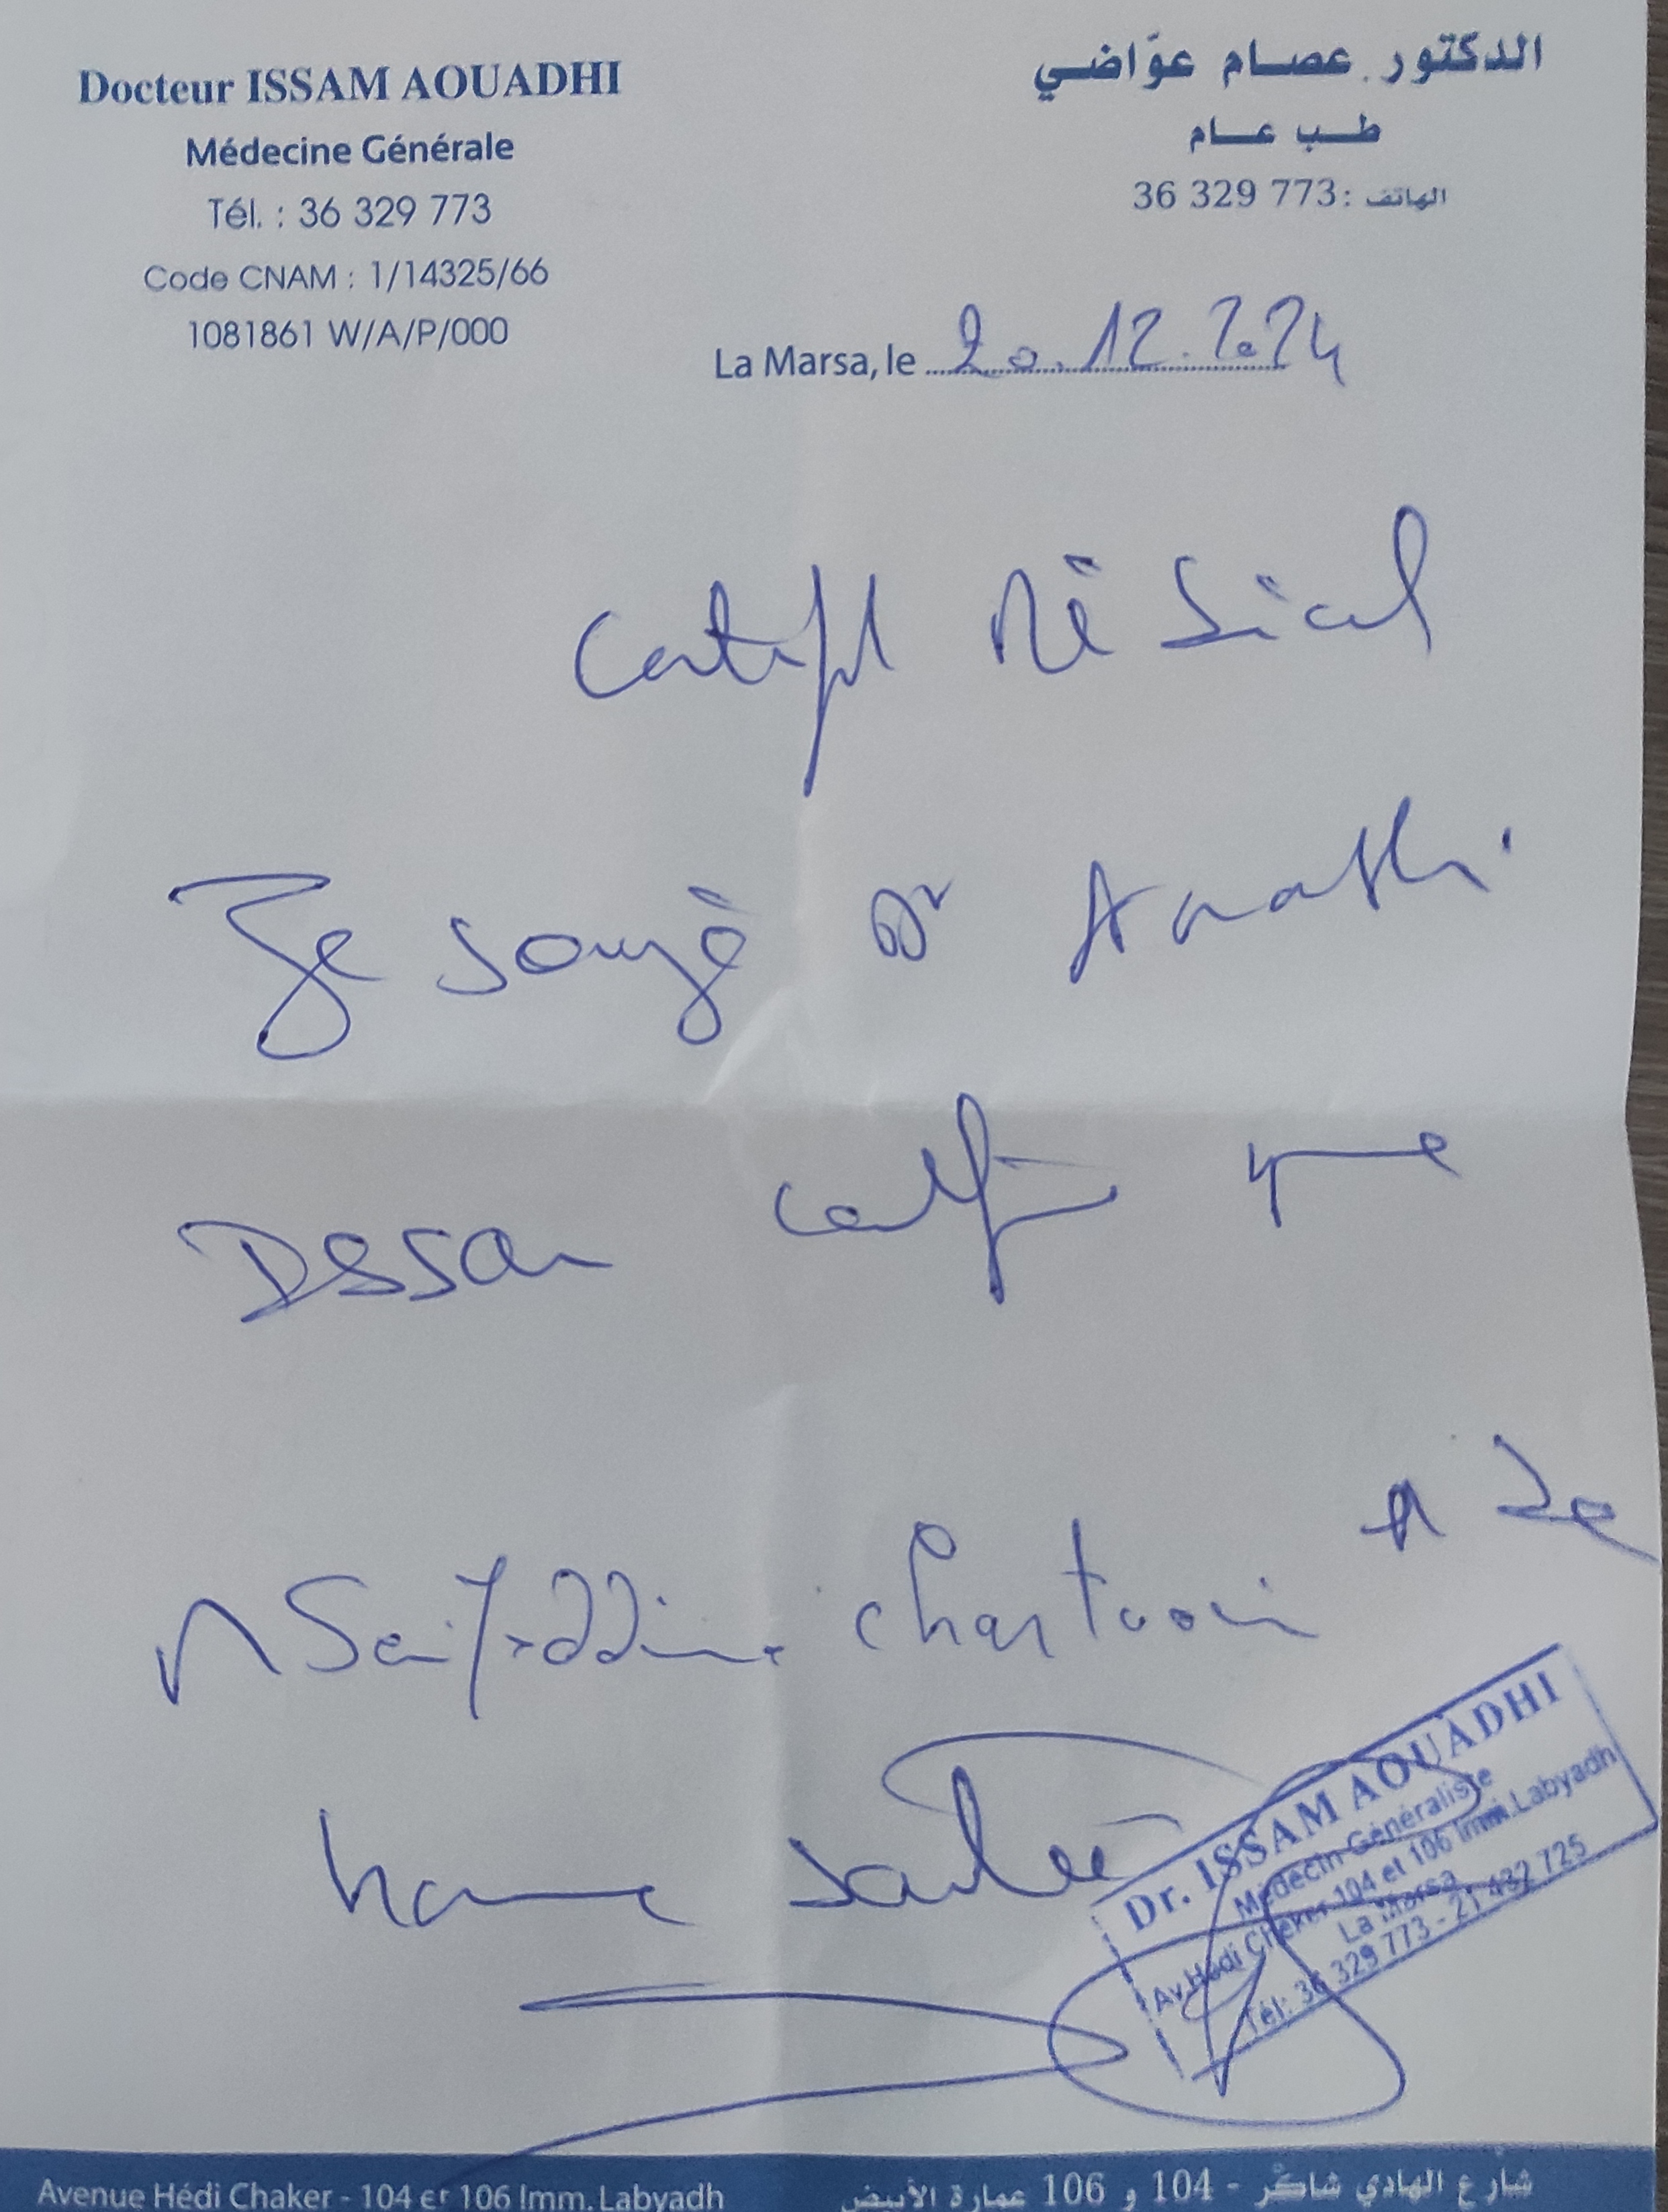 Docteur ISSAM AOUADHI
Médecine Générale
Tél. : 36 329 773
Code CNAM : 1/14325/66
1081861 W/A/P/000
الدكتور عصام عوّاضي
طب عام
الهاتف : 36 329 773
La Marsa, le 20.12.2024
Certificat Médical
Je soussigné Dr Aouadhi
Issam certifie que
Mr Seifeddine Chartouni a de
bonne santé
Dr. ISSAM AOUADHI
Médecin Généraliste
Av. Hédi Chaker 104 et 106 Imm. Labyadh
La Marsa
Tél: 36 329 773 - 21 432 725
Avenue Hédi Chaker - 104 et 106 Imm. Labyadh
شارع الهادي شاكر - 104 و 106 عمارة الأبيض